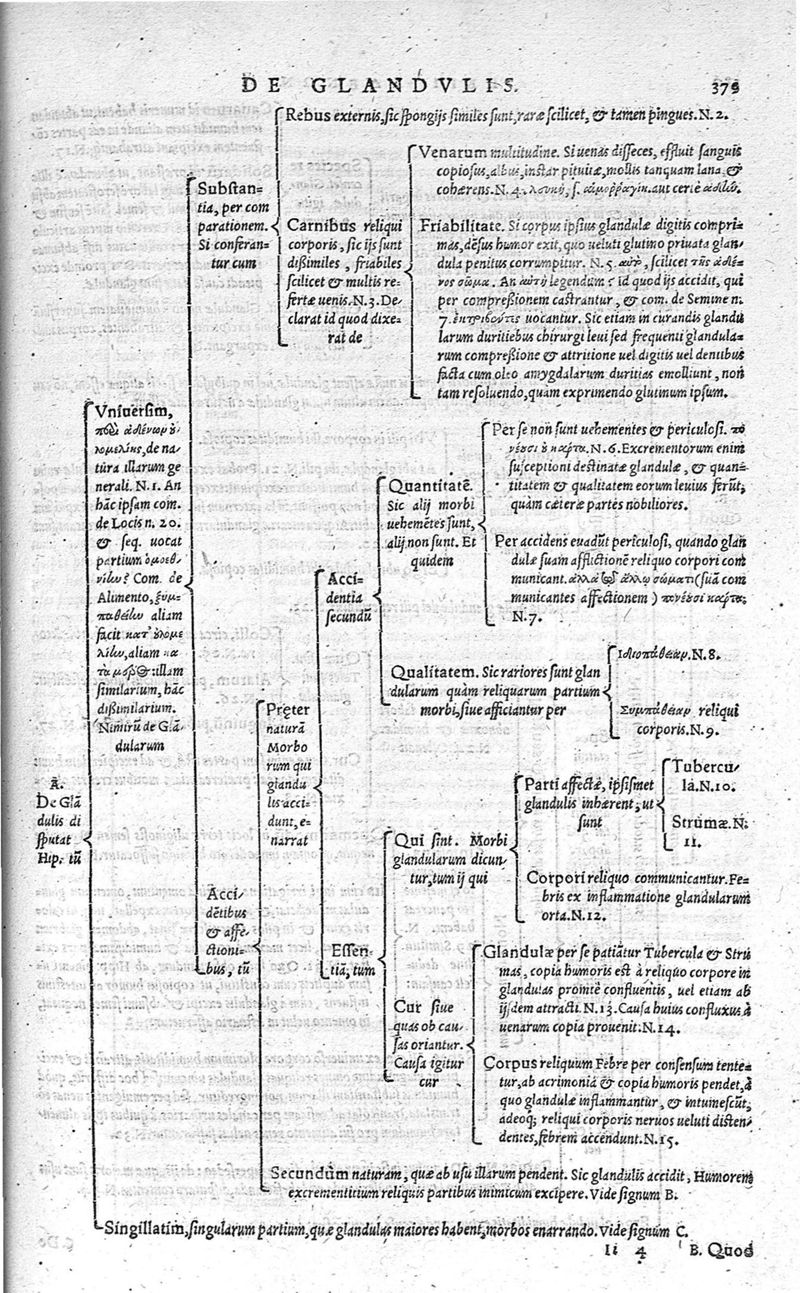 DE GLANDVLIS.
379
Rebus externis, sic spongijs similes sunt, raræ scilicet, & tamen pingues. N. 2.
Substan=
tia, per com
parationem.
Si conferan=
tur cum
Carnibus reliqui
corporis, sic ijs sunt
dißimiles, friabiles
scilicet & multis re=
fertæ uenis. N. 3. De=
clarat id quod dixe=
rat de
Venarum multitudine. Si uenas disseces, effluit sanguis
copiosus, albus, instar pituitæ, mollis tanquam lana &
cohærens. N. 4.
aut certè
Friabilitate. Si corpus ipsius glandulæ digitis compri=
mas, dēsus humor exit, quo ueluti glutino priuata glan=
dula penitus corrumpitur. N. 5. αυτο, scilicet της αδέ=
νος σωμα. An αυτη legendum? id quod ijs accidit, qui
per compreßionem castrantur, & com. de Semine n.
7. uocantur. Sic etiam in curandis glandu
larum duritiebus chirurgi leui sed frequenti glandula=
rum compreßione & attritione uel digitis uel dentibus
facta cum oleo amygdalarum duritias emolliunt, non
tam resoluendo, quàm exprimendo glutinum ipsum.
Vniuersim,
de na=
tura illarum ge
nerali. N. 1. An
hāc ipsam com.
de Locis n. 20.
& seq. uocat
partium
Com. de
Alimento, ξυμ=
aliam
facit
aliam κα
illam
similarium, hāc
dißimilarium.
Nimirū de Glā
dularum
Acci=
dentia
secundū
Quantitatē.
Sic alij morbi
uehemētes sunt,
alij non sunt. Et
quidem
Per se non sunt uehementes & periculosi. πο
νέυσι κάρτα. N. 6. Excrementorum enim
susceptioni destinatæ glandulæ, & quan=
titatem & qualitatem eorum leuius ferūt,
quàm cæteræ partes nobiliores.
Per accidens euadūt periculosi, quando glan
dulæ suam afflictionē reliquo corpori com
municant. σώματι (suā com
municantes affectionem) πονέυσι κάρτα.
N. 7.
Qualitatem. Sic rariores sunt glan
dularum quàm reliquarum partium
morbi, siue afficiantur per
Ιδιοπάθειαν. N. 8.
Συμπάθειαν reliqui
corporis. N. 9.
Præter
naturā
Morbo
rum qui
glandu
lis acci
dunt, e=
narrat
Ā.
De Glā
dulis di
sputat
Hip. tū
Acci=
dētibus
& affe=
ctioni=
bus, tū
Essen=
tiā, tum
Qui sint. Morbi
glandularum dicun=
tur, tum ij qui
Parti affectæ, ipsismet
glandulis inhærent, ut
sunt
Tubercu=
la. N. 10.
Strumæ. N.
11.
Corpori reliquo communicantur. Fe=
bris ex inflammatione glandularum
orta. N. 12.
Cur siue
quas ob cau=
sas oriantur.
Causa igitur
cur
Glandulæ per se patiātur Tubercula & Stru
mas, copia humoris est à reliquo corpore in
glandulas promtè confluentis, uel etiam ab
ijsdem attracti. N. 13. Causa huius confluxus à
uenarum copia prouenit. N. 14.
Corpus reliquum Febre per consensum tente=
tur, ab acrimonia & copia humoris pendet, à
quo glandulæ inflammantur, & intumescūt,
adeoq; reliqui corporis neruos ueluti disten=
dentes, febrem accendunt. N. 15.
Secundùm naturam, quæ ab usu illarum pendent. Sic glandulis accidit, Humorem
excrementitium reliquis partibus inimicum excipere. Vide signum B.
Singillatim, singularum partium, quæ glandulas maiores habent, morbos enarrando. Vide signum C.
Ii 4
B. Quod